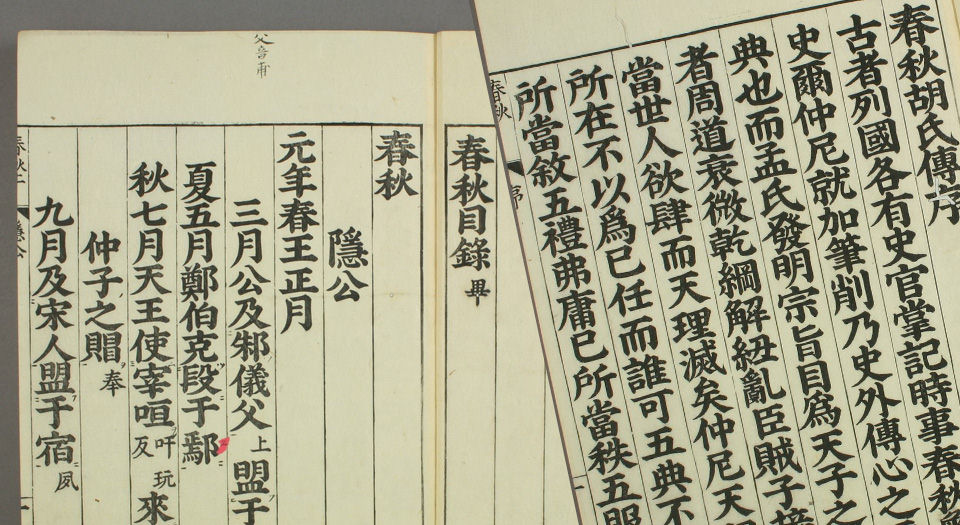 春秋胡氏傳序
古者列國各有史官掌記時事春秋
史爾仲尼就加筆削乃史外傳心之
典也而孟氏發明宗旨目爲天子之
者周道衰微乾綱解紐亂臣賊子接
當世人欲肆而天理滅矣仲尼天
所在不以爲已任而誰可五典不
所當敘五禮弗庸已所當秩五服
春秋 序
春秋目錄 畢
父音甫
春秋
隱公
元年春王正月
三月公及邾儀父 上 盟于
夏五月鄭伯克段于鄢
秋七月天王使宰咺 吁玩反 來
仲子之賵 奉
九月及宋人盟于宿 夙
隱公